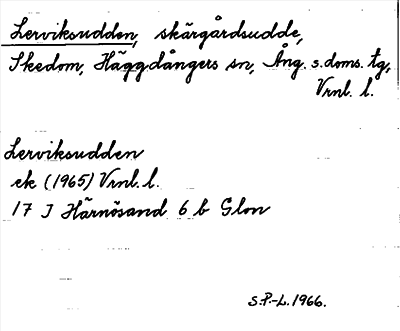 Lerviksudden, skärgårdsudde,
Skedom, Häggdångers sn, Ång. s. doms. tg,
Vrnl. l.
Lerviksudden
ek (1965) Vrnl. l.
17 J Härnösand 6 b Glon
S.P.-L. 1966.